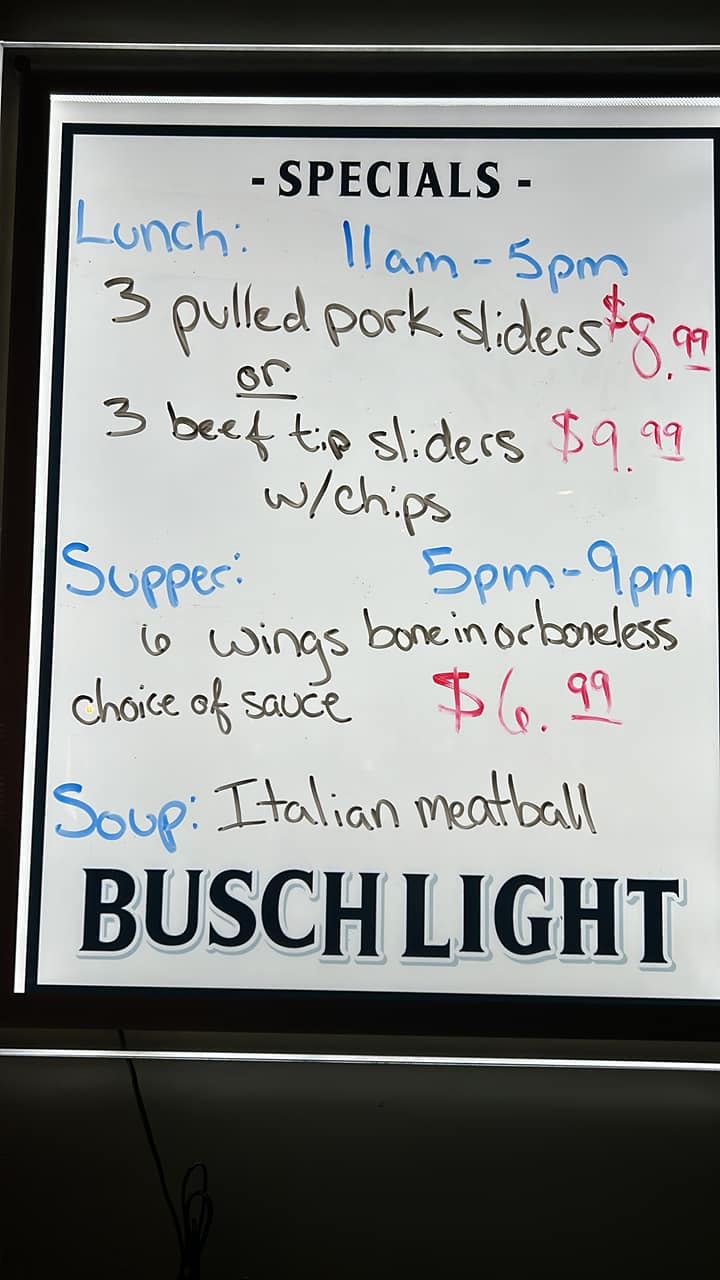 - SPECIALS -
Lunch: 11am - 5pm
3 pulled pork sliders $8.99
or
3 beef tip sliders $9.99
w/chips
Supper: 5pm - 9pm
6 wings bone in or boneless
choice of sauce $6.99
Soup: Italian meatball
BUSCH LIGHT